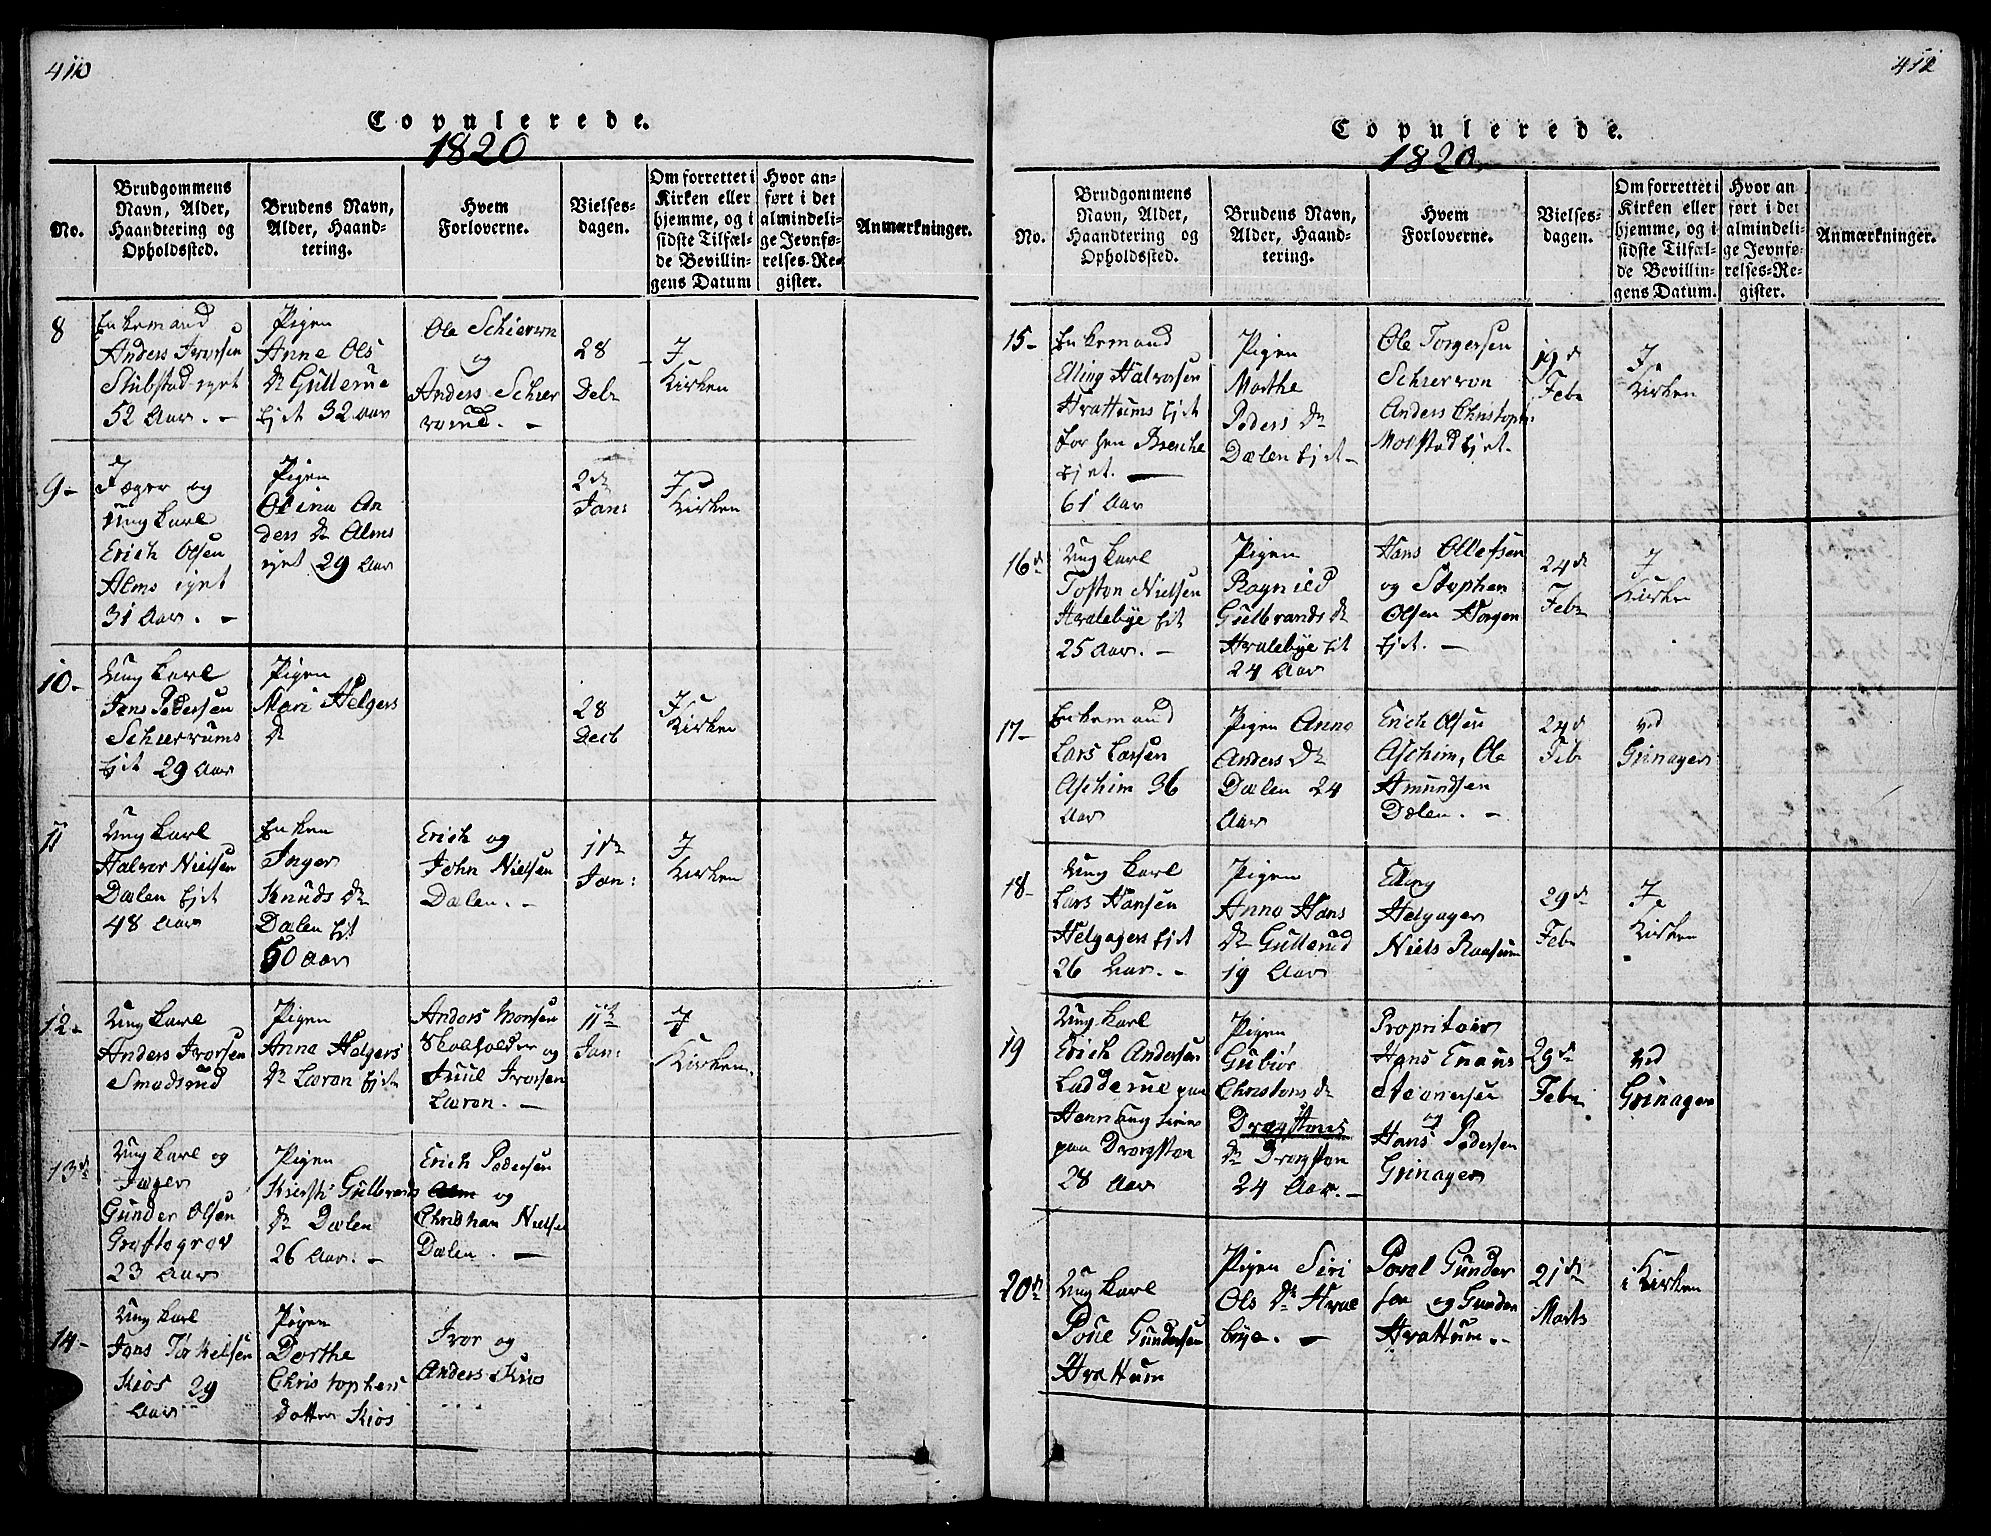 410
Copulerede.
1820
No.
Brudgommens
Navn, Alder,
Haandtering og
Opholdssted.
Brudens Navn,
Alder, Haand-
tering.
Hvem
Forloverne.
Vielses-
dagen.
Om forrettet i
Kirken eller
hjemme, og i
sidste Tilfæl-
de Bevillin-
gens Datum
Hvor an-
ført i det
almindeli-
ge Jevnfø-
relses-Re-
gister.
Anmærkninger.
8
Enkemand
Anders Iversen
Stubstad-eyet
52 Aar. -
Pigen
Anne Ols
Dr Gullerue
Ejet 32 aar
Ole Schiervon
og
Anders Schier
28
Debr
I
Kirken
9-
Jæger og
Ung karl
Erich Olsen
Alms eyet
31 Aar. -
Pigen
Olina An
ders Dr Alms
eyet 29 Aar
2de
Jan:
I
Kirken
10-
Ung karl
Jens Pedersen
Schierrums
Ejet 29 Aar
Pigen
Mari Helgers
Dr
28
Decb
I
Kirken
11
Ung karl
Halvor Nielsen
Dælen Ejet
48 Aar
Enken
Inger
Knuds Dr
Dælen Eit
50 aar
Erich og
John Nielsen
Dælen. -
11te
Jan:
I
Kirken
12-
Ung karl
Anders Iversen
Smedsrud
Pigen
Anna Helgers
Dr Læron Ejet
Anders Monsen
Skolholder og
Juul Iversen
Læron. -
11te
Jan:
I
Kirken.
13de
Ung karl og
Jæger
Gunder Olsen
Grøftegrav
23 Aar
Pigen
Kiersti Gulbrands
Dr Dælen
26 Aar. -
Erich Pedersen
Alm og
Christian Nielse
Dælen. -
14-
Ung karl
Jens Torkelsen
Kiøs 29
Aar
Pigen
Dorthe
Christophers
Datter Kiøs
Iver og
Anders Kiøs
411
Copulerede.
1820.
No.
Brudgommens
Navn, Alder,
Haandtering og
Opholdssted.
Brudens Navn,
Alder, Haand-
tering.
Hvem
Forloverne.
Vielses-
dagen.
Om forrettet i
Kirken eller
hjemme, og i
sidste Tilfæl-
de Bevillin-
gens Datum.
Hvor an-
ført i det
almindeli-
ge Jevnfø-
relses-Re-
gister.
Anmærkninger.
15-
Enkemand
Elling Halvorsen
Hvattums Ejet
Ejet. -
61 Aar
Pigen
Marthe
Peders Dr
Dælen Ejet-
Ole Torgersen
Schiervon
Anders Christophe
Molstad Ejet.
19de
Febr
I
Kirken
16de
Ung karl
Toston Nielsen
Hvalebye Eit
25 Aar. -
Pigen
Ragnild
Gulbrands Dr
Hvalebye Eit
24 Aar
Hans Ollefsen
og Stephen
Olsen Horgen
Ejet. -
24de
Febr
I
Kirken
17-
Enkemand
Lars Larsen
Aschim 36
Aar
Pigen Anne
Anders Dr
Dælen 24
Aar
Erich Olsen
Aschim, Ole
Amundsen
Dælen. -
24de
Feb
ved
Grinager
18-
Ung karl
Lars Hansen
Helgagers Ejet
26 Aar. -
Pigen
Anne Hans
Dr Gullerud
19 Aar
Elling
Helgager
Niels Raasum
29de
Feb
I
Kirken
19
Ung karl
Erich Andersen
Ladderue paa
paa Dragston
28 Aar
Pigen
Gubiør
Christens Dr
Dragstons
Dr Dragston
24 Aar. -
Propritair
Hans Enaus
Steenersen
og
Hans Pedersen
Grinager
29de
Febr
ved
Grinager
20de
Ung karl
Poue Gundersen
Hvattum
Pigen Siri
Ols Dr Hvale
bye. -
Povel Gunder
sen og Gunder
Hvattum. -
21de
Marts
i Kirken